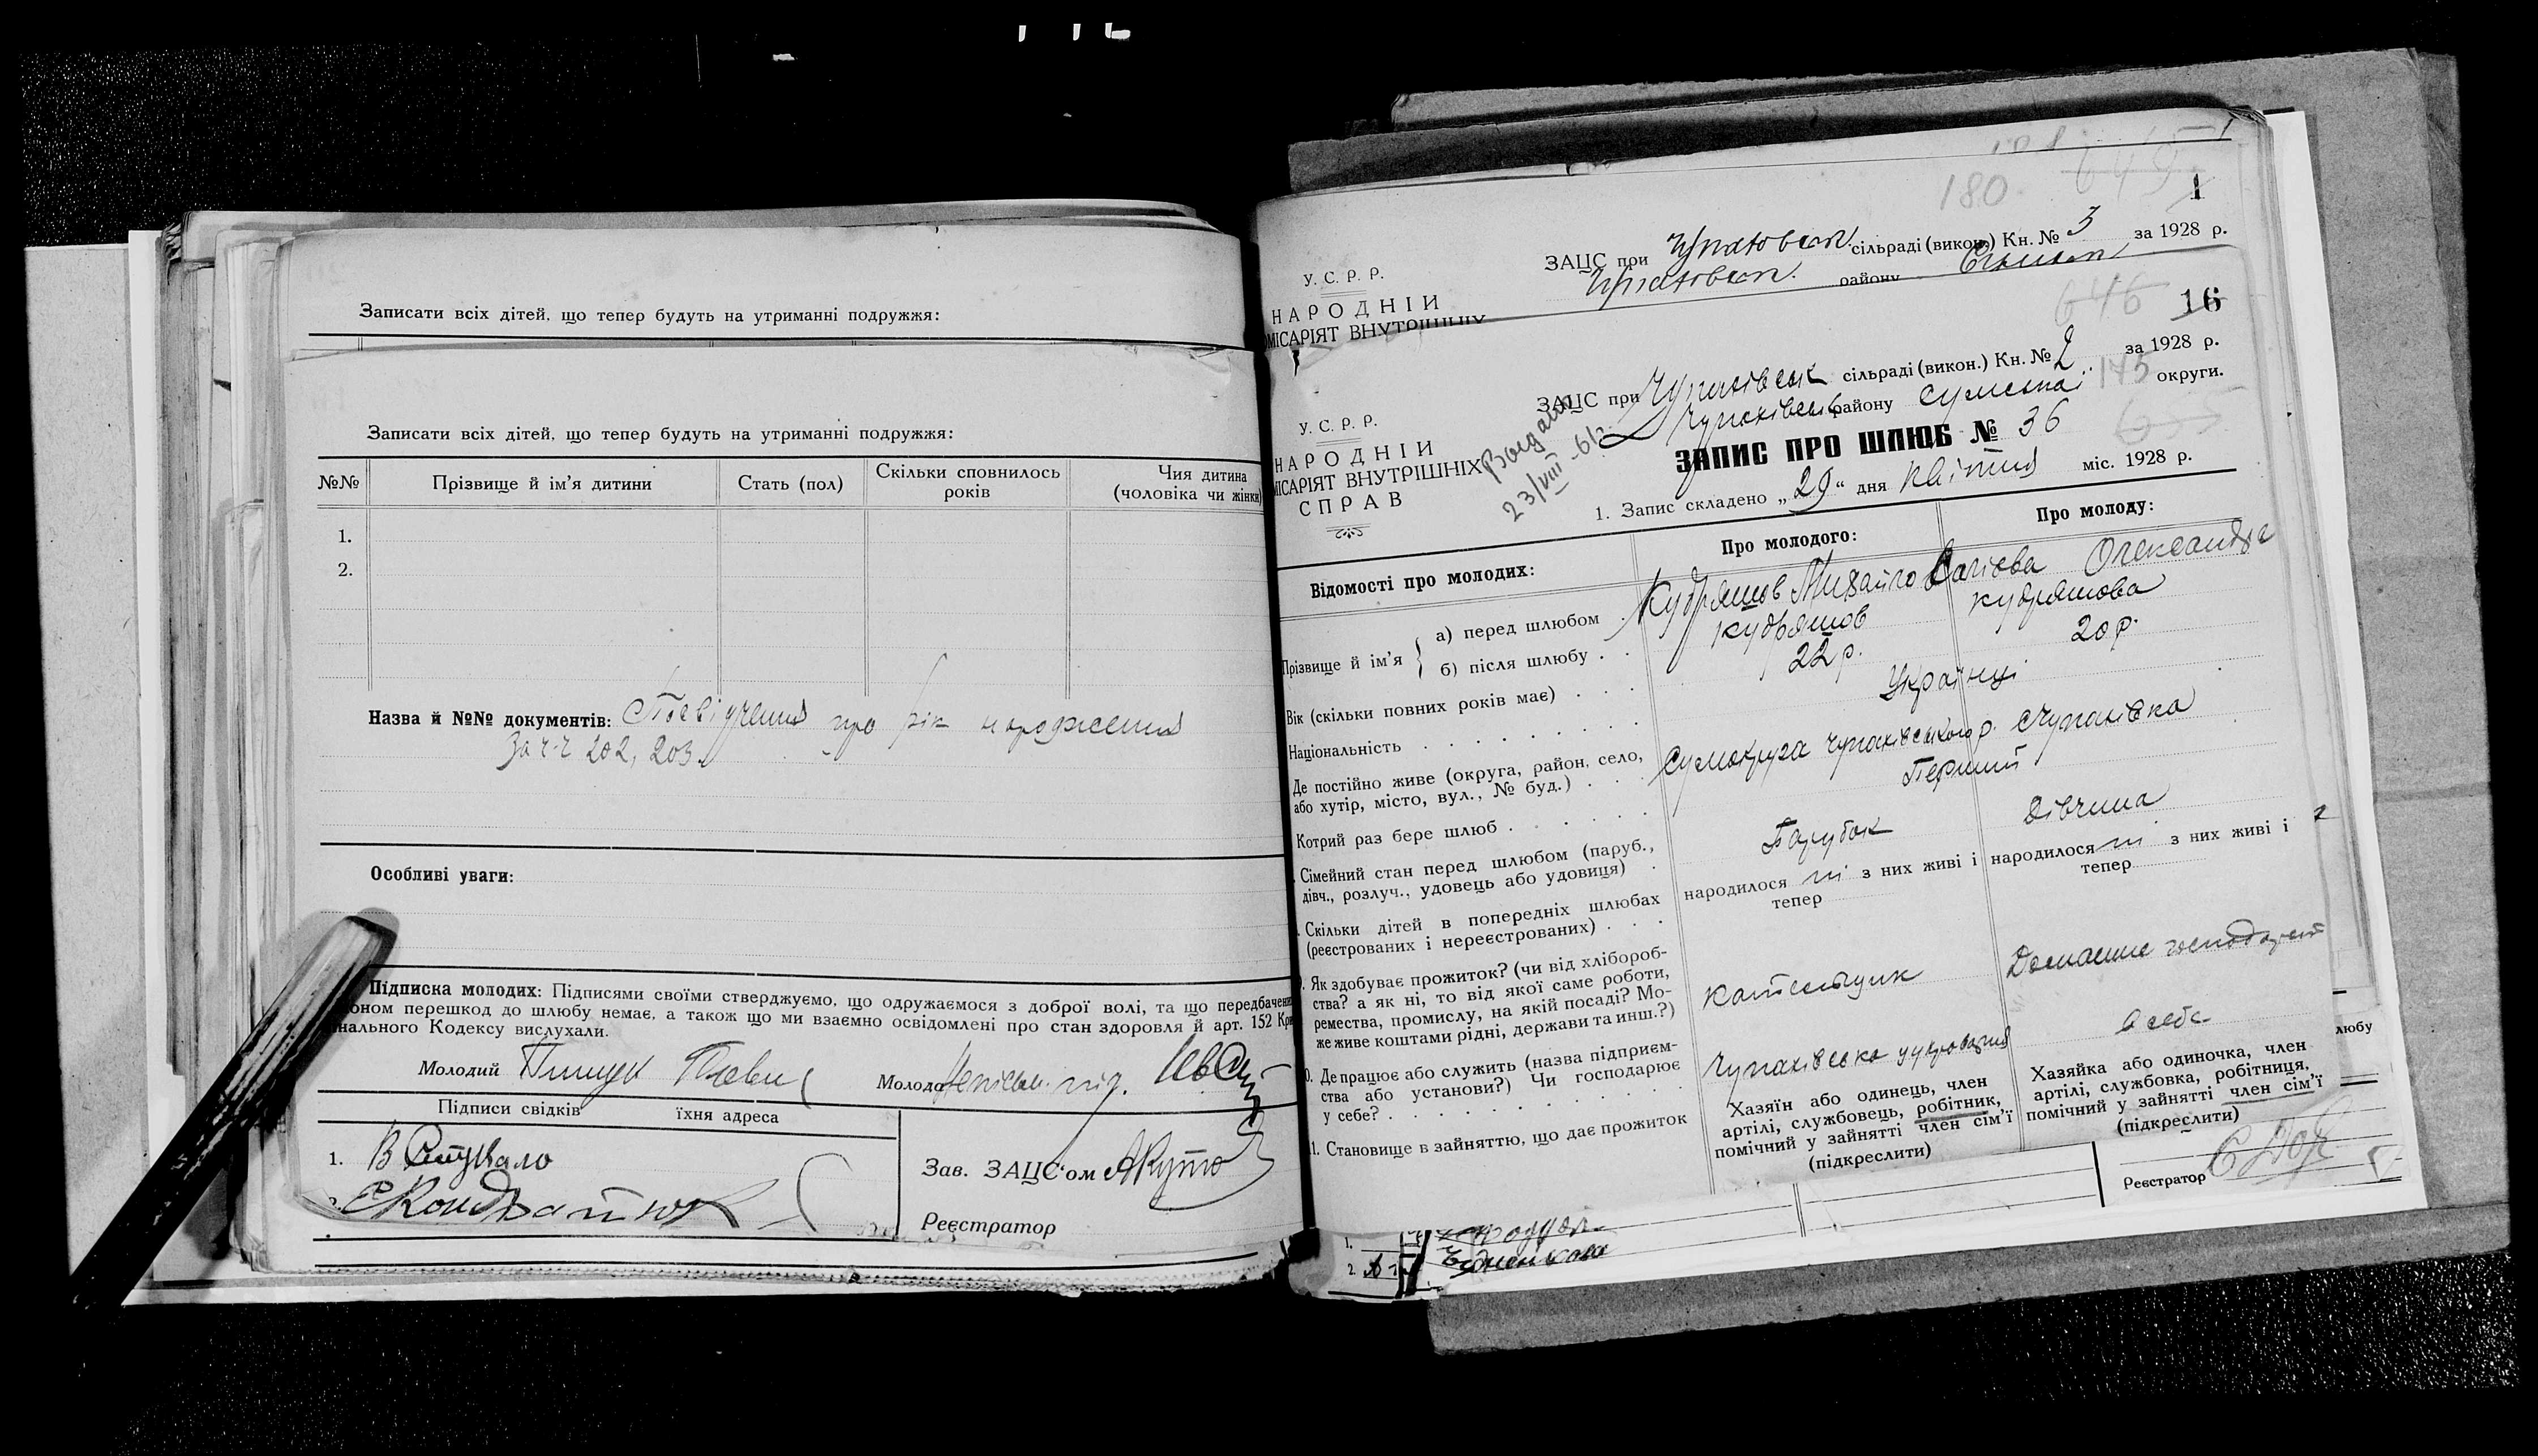 Записати всіх дітей, що тепер будуть на утриманні подружжя:
Записати всіх дітей, що тепер будуть на утриманні подружжя:
№№ Прізвище й ім'я дитини Стать (пол) Скільки сповнилось років Чия дитина (чоловіка чи жінки)
1.
2.
Назва й №№ документів: Посвідчення про рік народження
За ч.ч 202, 203.
Особливі уваги:
Підписка молодих: Підписями своїми стверджуємо, що одружаємося з доброї волі, та що передбачених
коном перешкод до шлюбу немає, а також що ми взаємно освідомлені про стан здоровля й арт. 152 Кри
нального Кодексу вислухали.
Молодий Молода
Підписи свідків їхня адреса
1.
Зав. ЗАЦС'ом
Реєстратор
180 1
У. С. Р. Р.
НАРОДНІЙ
МІСАРІЯТ ВНУТРІШНІХ
ЗАЦС при сільраді (викон.) Кн. № 3 за 1928 р.
району
646 16
У. С. Р. Р.
НАРОДНІЙ
МІСАРІЯТ ВНУТРІШНІХ
СПРАВ
23/VIII-61.
ЗАЦС при Чупахівськ сільраді (викон.) Кн. № 2 за 1928 р.
Чупахівськ району Сумської округи.
175
ЗАПИС ПРО ШЛЮБ № 36
1. Запис складено „29“ дня квітня міс. 1928 р.
Відомості про молодих: Про молодого: Про молоду:
Прізвище й ім'я { а) перед шлюбом . Кудряшов Михайло Олександра
б) після шлюбу . . Кудряшов Кудряшова
Вік (скільки повних років має) . . . 22 р. 20 р.
Національність . . . Українці
Де постійно живе (округа, район, село, або хутір, місто, вул., № буд.) . . . Сумокруга Чупахівського р. с Чупахівка
Котрий раз бере шлюб . . . Перший
Сімейний стан перед шлюбом (паруб., дівч., розлуч., удовець або удовиця) . Парубок Дівчина
Скільки дітей в попередніх шлюбах (реєстрованих і нереєстрованих) . . . народилося ні з них живі і тепер народилося ні з них живі і тепер
Як здобуває прожиток? (чи від хлібороб-
ства? а як ні, то від якої саме роботи,
ремества, промислу, на якій посаді? Мо-
же живе коштами рідні, держави та инш.?)
Домашнє господарст
Де працює або служить (назва підприєм-
ства або установи?) Чи господарює
у себе? . . .
Чупахівська цукроварня в себе
11. Становище в зайняттю, що дає прожиток
Хазяїн або одинець, член
артілі, службовець, робітник,
помічний у зайнятті член сім'ї
(підкреслити)
Хазяйка або одиночка, член
артілі, службовка, робітниця,
помічний у зайнятті член сім'ї
(підкреслити)
любу
Реєстратор
1.
2.